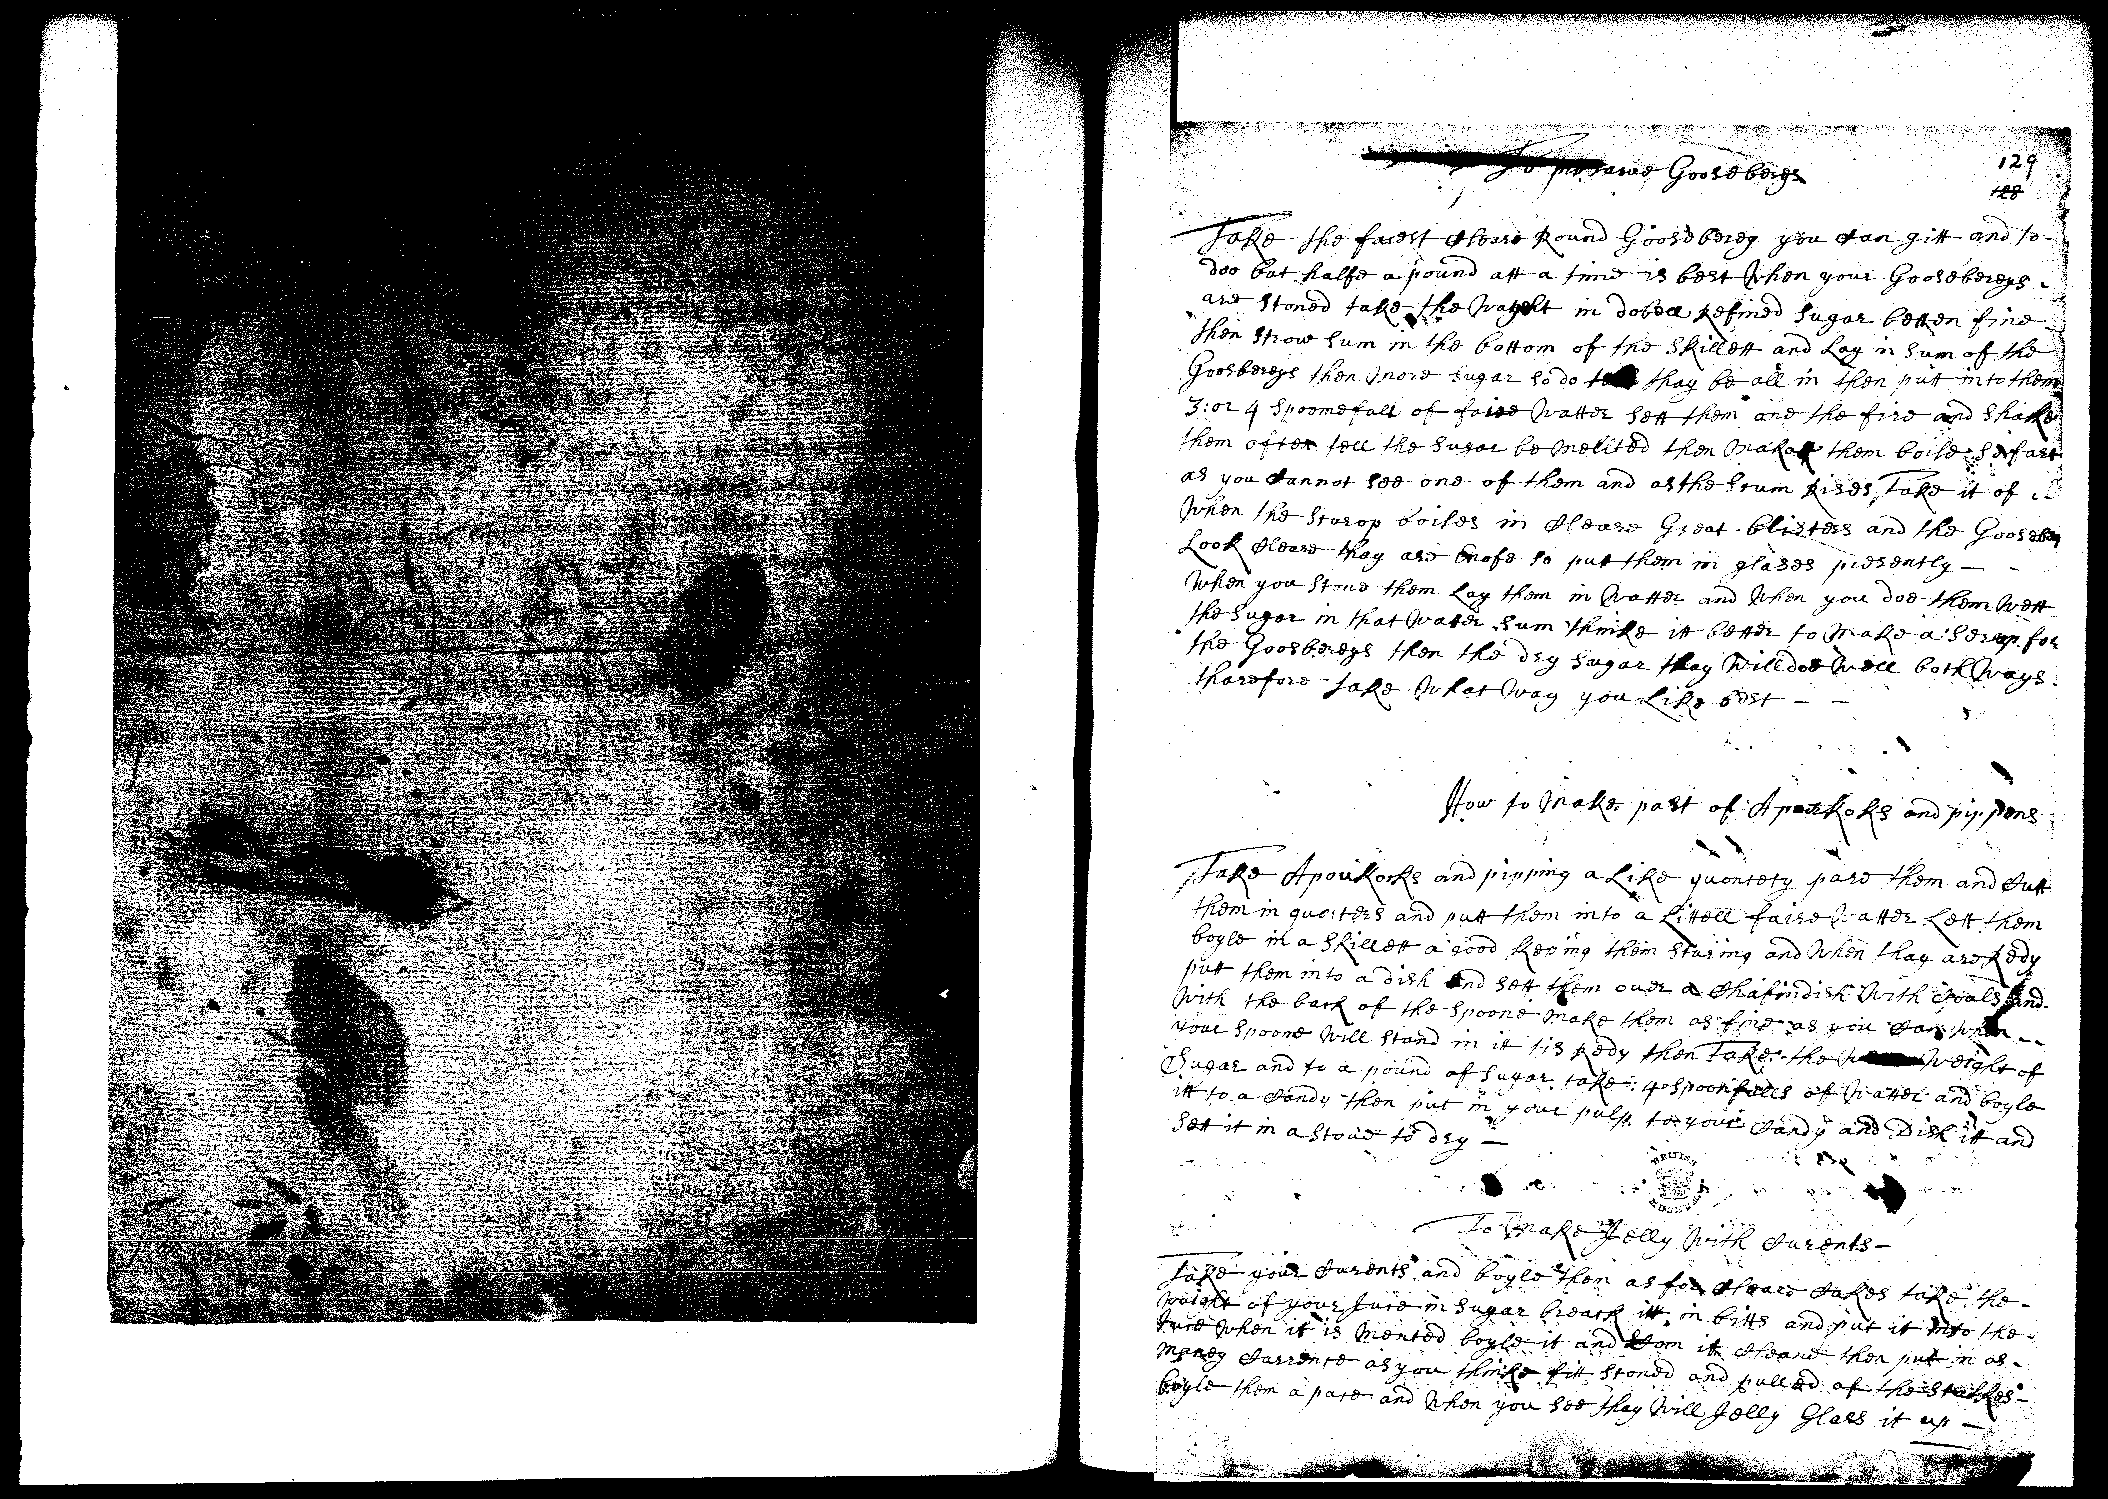 To preserve Goosberys
129
128
Take the farest Cleare Round Goosberey you Can gitt and to
doe but halfe a pound att a time is best When your Goosebereys
are stoned take the Wayght in dobell Refined Sugar betten fine
then Strow Sum in the bottom of the Skillett and Lay in Sum of the
Goosbereys then More Sugar so do thay be all in then putt in to them
3: or 4 Spoonefull of faire Watter Sett them one the fire and Shake
them often tell the Sugar be Melited then Make them boile so fast
as you Cannot See one of them and as the Scum Rises Take it of
When the Sirop boiles in Cleare Great blisters and the Goosebe
Look Cleare thay are Enofe so putt them in glases presently
When you Stone them Lay them in Watter and When you doe them Wett
the Sugar in that Watter Sum thinke itt better to Make a Serup for
the Goosbereys then the dry Sugar thay Will doe Well both Ways
tharefore Take What Way you Like best
How to Make past of Apricokes and pippens
Take Apricokes and pipping a Like quontety pare them and Cutt
them in quorters and putt them into a Littell faire Watter Lett them
boyle in a Skillett a good Keping them Sturing and When thay are Redy
putt them into a dish and Sett them over a Chafindish With Coals and
With the back of the Spoone Make them as fine as you Can When
your Spoone Will Stand in it tis Redy then Take the Weight of
Sugar and to a pound of Sugar take 4 Spoonfulls of Watter and boyle
itt to a Candy then put in your pulp to your Candy and Dish itt and
Sett it in a Stove to dry
BRITISH
MUSEUM
To Make Jelly With Curents
Take your Curents and boyle then as for Cleare Cakes take the
Waight of your Juce in Sugar breack itt in bitts and put it into the
Juce When it is Mented boyle it and Scom it Cleane then put in as
Maney Currence as you thinke fitt Stoned and pulled of the Stalkes
boyle them a pace and When you See thay Will Jelly Glass it up